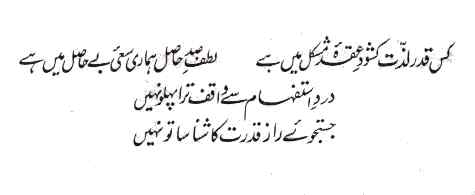 کس قدر لذّت کشودِ عقدۂ مشکل میں ہے لطفِ صد حاصل ہماری سعیِٔ بے حاصل میں ہے
دردِ استفہام سے واقف ترا پہلو نہیں
جستجوئے رازِ قدرت کا شناسا تو نہیں